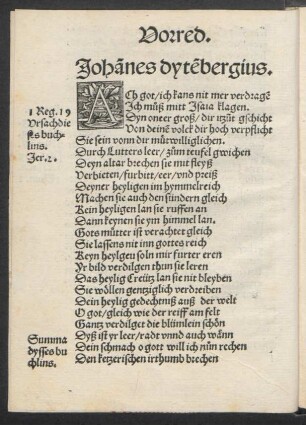 Vorred.
Johãnes dytẽbergius.
1 Reg. 19
Vrsach die
ses buch-
lins.
Jer. 2.
Ach got / ich kans nit mer verdragẽ
Ich můß mitt Isaia klagen.
Dyn oneer groß / dir itzůt gschicht
Von deinẽ volck dir hoch verpflicht
Sie sein vonn dir můrwilliglichen.
Durch Lutters leer / zům teufel gwichen
Deyn altar brechen sie mit fleyß
Verbieten / furbitt / eer / vnd preiß
Deyner heyligen im hymmelreich
Machen sie auch den sündern gleich
Kein heyligen lan sie ruffen an
Dann keynen sie ym himmel lan.
Gots můtter ist verachtet gleich
Sie lassens nit inn gottes reich
Keyn heylgen soln mir furter eren
Yr bild verdilgen thun sie leren
Das heylig Creütz lan sie nit bleyben
Sie wöllen gentziglich verdreiben
Dein heylig gedechtniß auß der welt
O got / gleich wie der reiff am felt
Gantz verdilget die blümlein schön
Dyß ist yr leer / radt vnnd auch wänn
Dein schmach o gott will ich nün rechen
Den ketzerischen irthumb brechen
Summa
dysses bu
chlins.